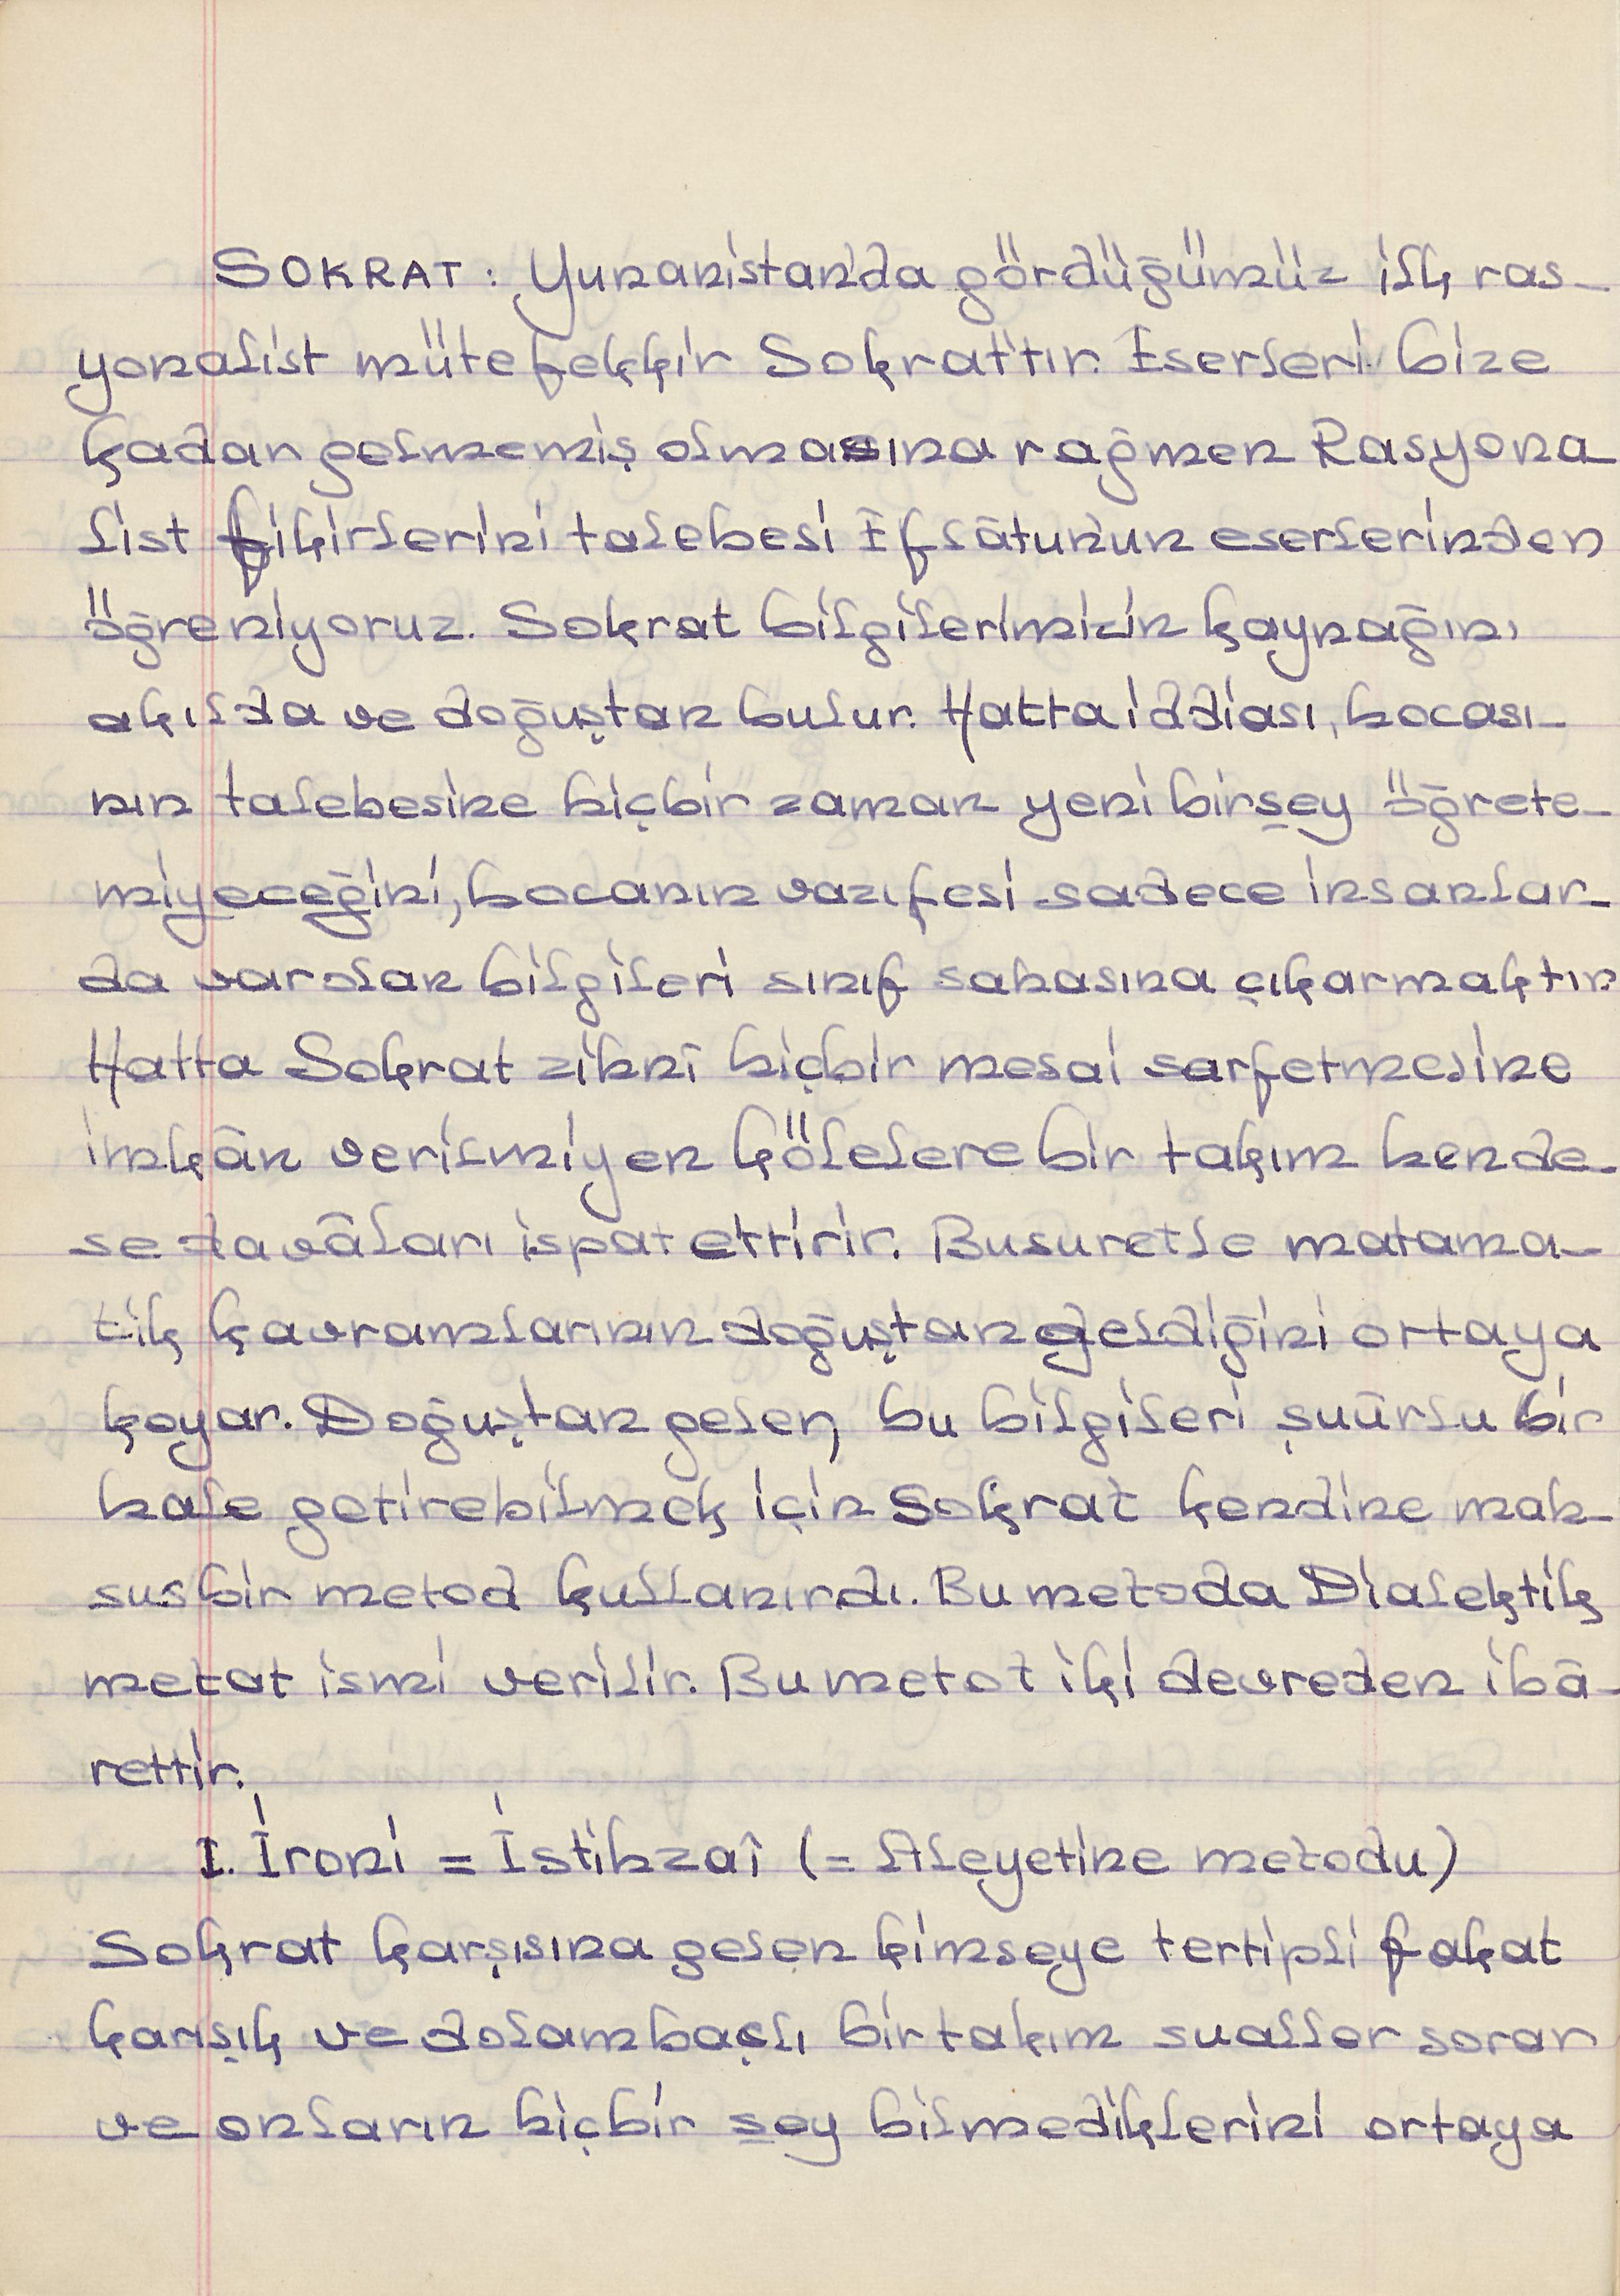 SOKRAT : Yunanistan'da gördüğümüz ilk ras-
yonalist mütefekkir Sokrat'tır. Eserleri bize
kadar gelmemiş olmasına rağmen Rasyona
list fikirlerini talebesi Eflâtunun eserlerinden
öğreniyoruz. Sokrat bilgilerimizin kaynağını
akılda ve doğuştan bulur. Hatta iddiası, hocası-
nın talebesine hiçbir zaman yeni birşey öğrete-
miyeceğini, hocanın vazifesi sadece insanlar-
da varolan bilgileri sınıf sahasına çıkarmaktır.
Hatta Sokrat zihnî hiçbir mesai sarfetmesine
imkân verilmiyen kölelere bir takım hende-
se davâları ispat ettirir. Bu suretle matama-
tik kavramlarının doğuştan geldiğini ortaya
koyar. Doğuştan gelen, bu bilgileri şuûrlu bir
hale getirebilmek için Sokrat kendine mah-
sus bir metod kullanırdı. Bu metoda Dialektik
metat ismi verilir. Bu metot iki devreden ibâ-
rettir.
I. İroni = İstihzaî (= Aleyetine metodu)
Sokrat karşısına gelen kimseye tertipli fakat
karışık ve dolambaçlı bir takım sualler sorar
ve onların hiçbir şey bilmediklerini ortaya